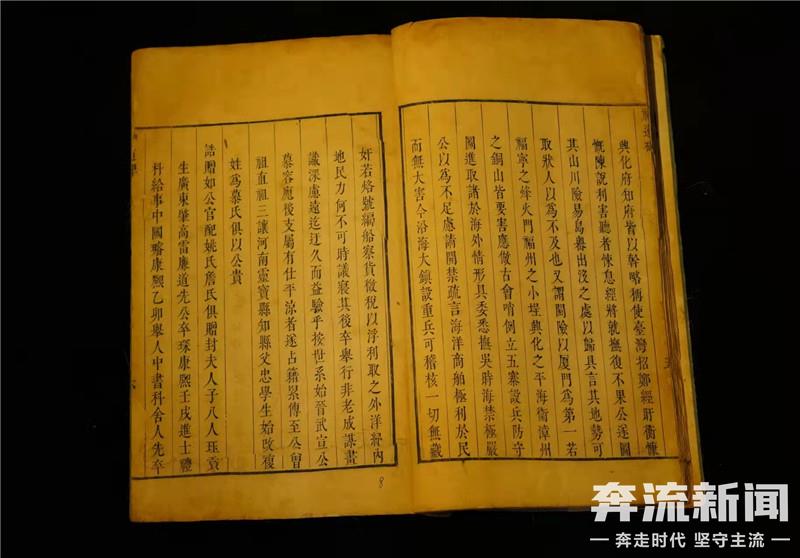 興化府知府皆以幹略稱使臺灣招鄭經盱衡慷
慨陳說利害聽者悚息經將就撫復不果公遂圖
其山川險易島嶼出沒之處以歸具言其地勢可
取狀人以為不及也又謂閩險以厦門為第一若
福寧之烽火門福州之小埕興化之平海衛漳州
之銅山皆要害應倣古會哨例立五寨設兵防守
圖進取諸於海外情形具委悉撫吳時海禁極嚴
公以為不足處請開禁疏言海洋商舶極利於民
而無大害今沿海大鎮設重兵可稽核一切無藏
奸若烙號編船察貨徵稅以浮利取之外洋紓內
地民力何不可時議寢其後卒舉行非老成謀畫
識深慮遠迄迂久而益驗乎按世系始晉武宣公
慕容應後支屬有仕平涼者遂占籍累傳至公曾
祖直祖三讓河南靈寶縣知縣父忠學生始改複
姓為慕氏俱以公貴
誥贈如公官配姚氏詹氏俱贈封夫人子八人貢
生廣東肇高雷廉道先公卒琛康熙壬戌進士禮
科給事中國略康熙乙卯舉人中書科舍人先卒
8
奔流新闻
奔走时代 坚守主流